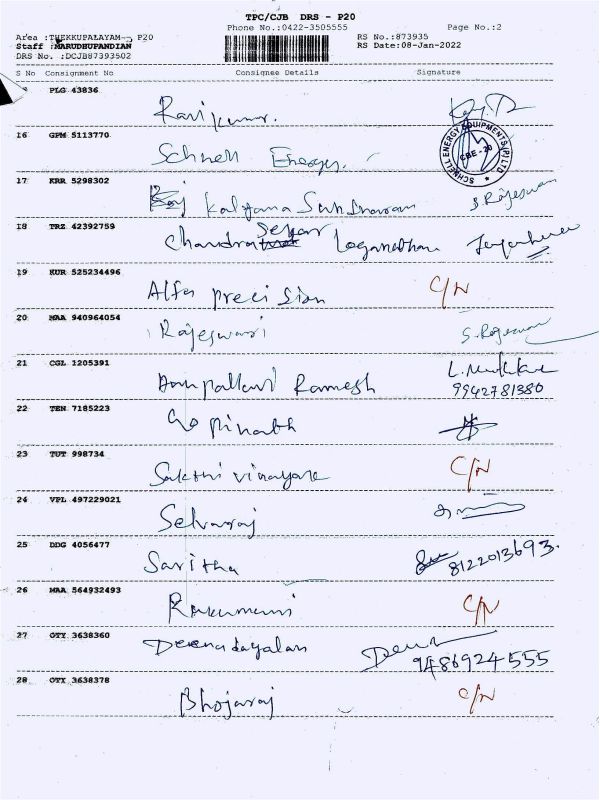 TPC/CJB DRS - P20
Phone No.:0422-3505555 Page No.:2
Area :THEKKUPALAYAM- P20 RS No.:873935
Staff :MARUDHUPANDIAN RS Date:08-Jan-2022
DRS No. :DCJB87393502
S No Consignment No Consignee Details Signature
PLG 43836
Ravikumar.
16 GPM 5113770
Schnell Energy. SCHNELL ENERGY EQUIPMENTS (P) LTD CBE - 20
17 KRR 5298302
Kalyana Sundraram S. Rajeswari
18 TRZ 42392759
Chandrasekar Loganathan
19 KUR 525234496
Alfa precision C/N
20 MAA 940964054
Rajeswari S. Rajeswari
21 CGL 1205391
Ramesh 9942781380
22 TEN 7185223
Gopinath
23 TUT 998734
Sakthi vinayaka C/N
24 VPL 497229021
Selvaraj
25 DDG 4056477
Saritha 8122013693.
26 MAA 564932493
C/N
27 OTY 3638360
Deenadayalan 9486924555
28 OTY 3638378
Bhojaraj C/N